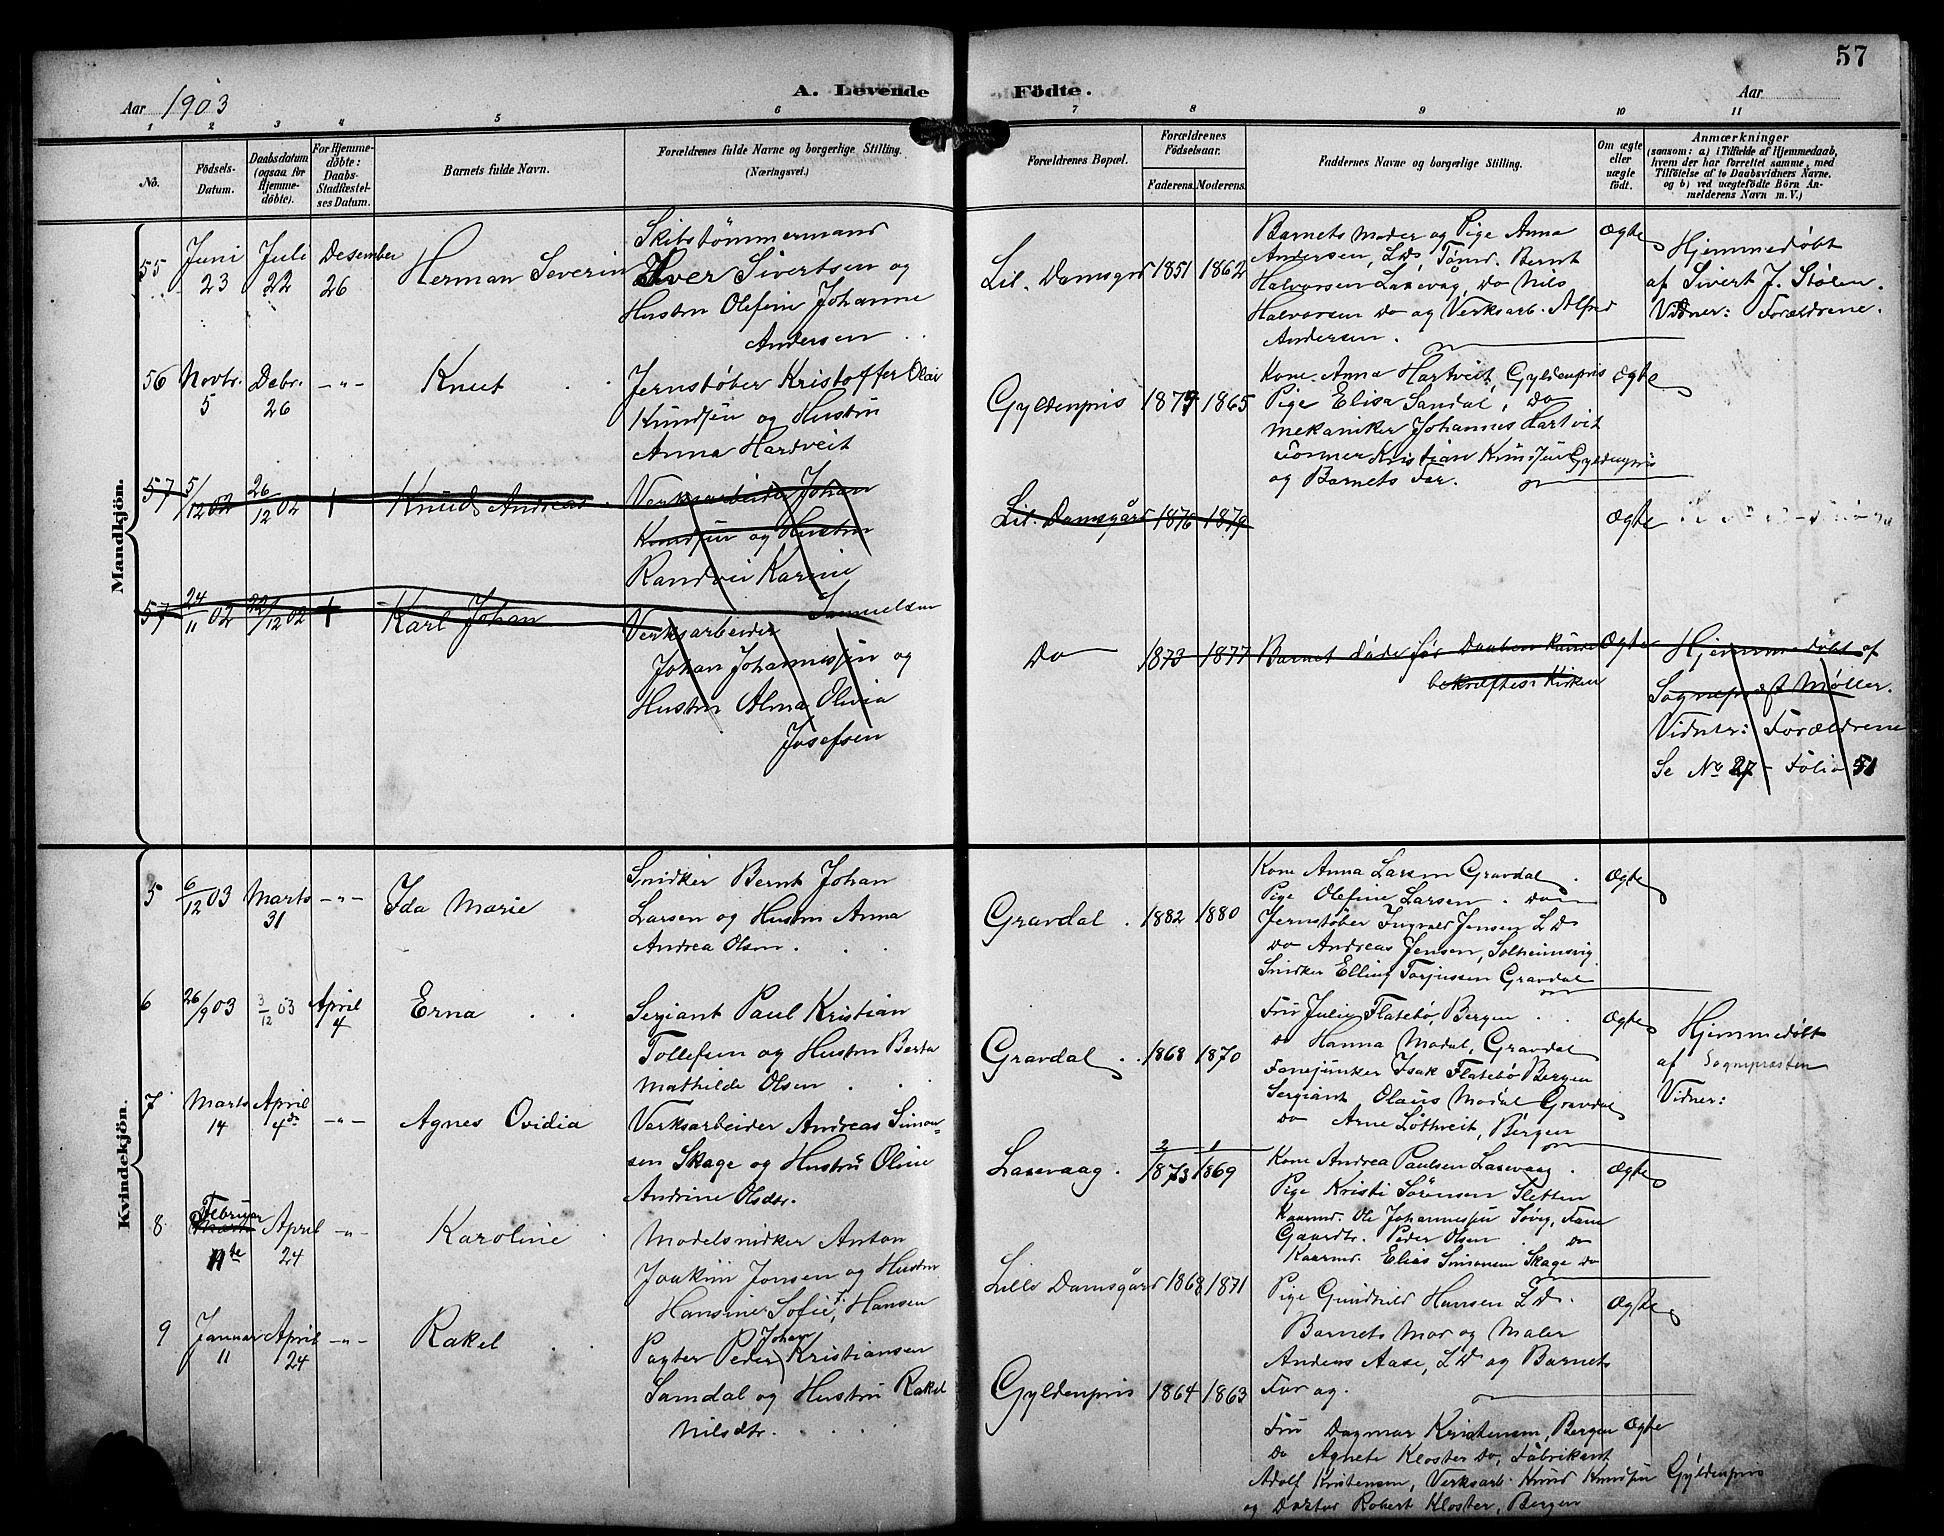 57
Aar 1903
A. Levende
Födte.
Aar
1 2 3 4 5 6 7 8 9 10 11
No.
Födsels-
Datum.
Daabsdatum
(ogsaa for
Hjemme-
døbte).
For Hjemme-
døbte:
Daabs-
Stadfæstel-
ses Datum.
Barnets fulde Navn.
Forældrenes fulde Navne og borgerlige Stilling.
(Næringsvei.)
Forældrenes Bopæl.
Forældrenes
Fødselsaar.
Faderens. Moderens.
Faddernes Navne og borgerlige Stilling.
Om ægte
eller
uægte
født.
Anmærkninger
(saasom: a) i Tilfælde af Hjemmedaab,
hvem der har forrettet samme, med
Tilføielse af to Daabsvidners Navne,
og b) ved uægtefødte Börn An-
melderens Navn m. V.)
Mandkjön.
55
Juni
23
Juli
22
Desember
26
Herman Severin
Skibstømmermand
Iver Sivertsen og
Hustru Olefine Johanne
Andersen
Lil. Damsgrd 1851 1862
Barnets Moder og Pige Anna
Andersen, LD, Tømd. Bernt
Halvorsen Laxevag, do Nils
Halvorsen do og Verksarb. Alfred
Andersen.
Ægte
Hjemmedøbt
af Sivert J. Stølen.
Vidner: Forældrene.
56 Novbr.
5
Debr.
26
-"-
Knut
Jernstøber Kristoffer Olai
Knudsen og Hustru
Anna Hardveit
Gyldenpris 1879 1865
Kone Anna Hartveit, Gyldenpris
Pige Elisa Sandal, do
Mekaniker Johannes Hartvit
Former Kristian Knudsen Gyldenpris
og Barnets Far.
Ægte
57 5/12 02 26/12 02 +
Knud Andreas
Verksarbeider Johan
Knudsen og Hustru
Randvei Karine
Samuelsen
Lil. Damsgård 1876 1879
Ægte
57 24/11 02 22/12 02 +
Karl Johan
Verksarbeider
Johan Johannessen og
Hustru Alma Olivia
Josefsen
Do 1873 1877
Barnet døde før Daaben kunde
bekræftes i Kirken
Ægte
Hjemmedøbt af
Sogneprest Møller.
Vidner: Forældrene
Se No 27 - Folio 51
Kvindekjön.
5 6/12 03 Marts
31
-"-
Ida Marie
Snidker Bernt Johan
Larsen og Hustru Anna
Andrea Olsen.
Gravdal. 1882 1880
Kone Anna Larsen Gravdal.
Pige Olefine Larsen. do
Jernstøber Ingvald Jensen LD
do Andreas Jensen, Solheimsvig
Snidker Elling Torjussen Gravdal
Ægte
6 26/9 03 3/12 03 April
4
Erna
Sergiant Paul Kristian
Tollefsen og Hustru Berta
Mathilde Olsen
Gravdal 1868 1870
Fru Julie Flatebø, Bergen
do Hanna Modal, Gravdal
Fanejunker Isak Flatebø Bergen
Sergiant Olaus Modal Gravdal
do Arne Løthveit, Bergen
Ægte
Hjemmedøbt
af Sognepræsten
Vidner:
7 Marts
14
April
4de
-"-
Agnes Ovidia
Verksarbeider Andreas Simon-
sen Skage og Hustru Oline
Andrine Olsdtr.
Laxevaag. 2/1873 1/1869
Kone Andrea Paulsen Laxevaag.
Pige Kristi Sørensen Sletten
Kaarmd. Ole Johannessen Søvig, Fane
Gaardbr. Peder Olsen do
Kaarmd. Elias Simonsen Skage do
Ægte
8
Februar
Marts
11te
April
24
-"-
Karoline
Modelsnidker Anton
Joakim Jonsen og Hustru
Hansine Sofie F. Hansen
Lille Damsgård 1868 1871
Pige Gundhild Hansen LD.
Barnets Mor og Maler
Anders Aase, LD og Barnets
Far og.
Ægte
9 Januar
11
April
24
-"-
Rakel
Pagter Peder Johan Kristiansen
Samdal og Hustru Rakel
Nilsdtr.
Gyldenpris 1864 1863
Fru Dagmar Kristensen, Bergen
Do Agnete Kloster Do, Fabrikant
Adolf Kristensen, Verksarb. Knud Knudsen Gyldenpris
og Doktor Robert Kloster, Bergen
Ægte